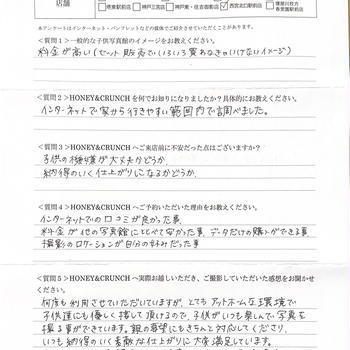 店舗
西宮北口駅前店
※アンケートはインターネット・パンフレットなどの媒体でご紹介させていただくことがあります。
＜質問１＞一般的な子供写真館のイメージをお教えください。
料金が高い(セット販売でいろいろ買わなきゃいけないイメージ)
＜質問２＞HONEY&CRUNCHを何でお知りになりましたか？具体的にお教えください。
インターネットで家から行きやすい範囲内で調べました。
＜質問３＞HONEY&CRUNCHへご来店前に不安だった点はございますか？
子供の機嫌が大丈夫かどうか
納得のいく仕上がりになるかどうか
＜質問４＞HONEY&CRUNCHへご予約いただいた理由をお教えください。
インターネットでの口コミが良かった事
料金が他の写真館にくらべて安かった事、データだけの購入ができる事
撮影のロケーションが自分の好みだった事
＜質問５＞HONEY&CRUNCHへ実際お越しいただき、ご撮影していただいた感想をお聞かせください。
何度も利用させていただいていますが、とてもアットホームな環境で
子供達にも優しく接して頂けるので、子供がいつも楽しんで写真を
撮る事ができています。親の要望にもきちんと対応してくださり、
いつも納得のいく素敵な仕上がりに大変満足しています。